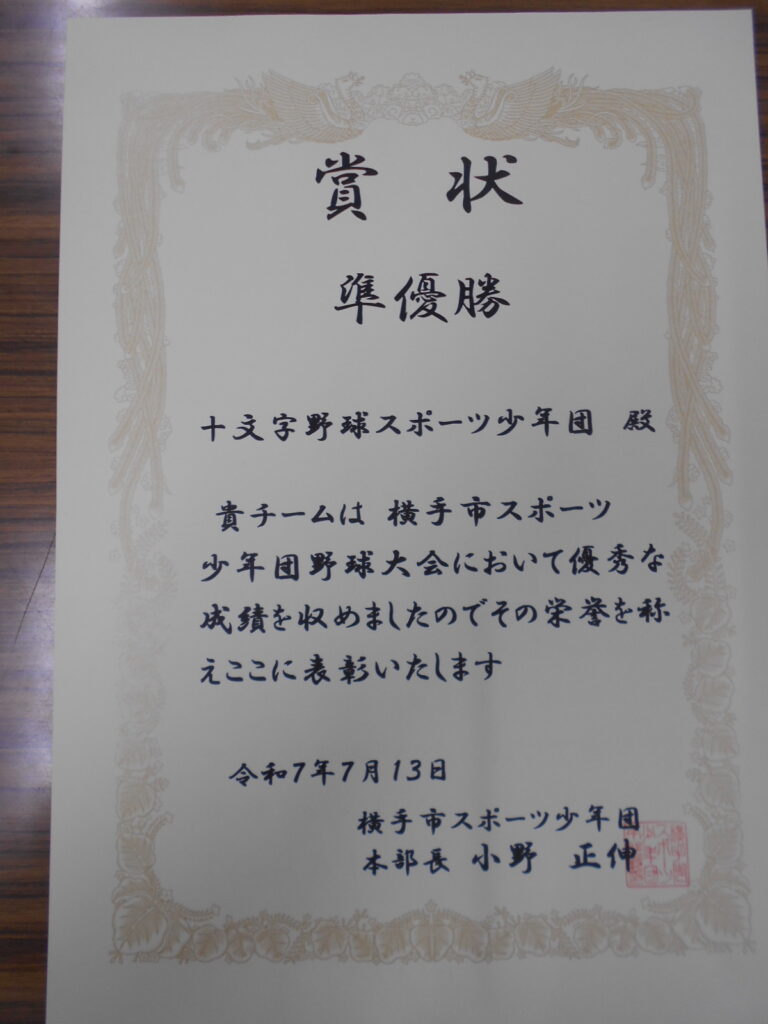 賞状
準優勝
十文字野球スポーツ少年団 殿
貴チームは 横手市スポーツ
少年団野球大会において優秀な
成績を収めましたのでその栄誉を称
えここに表彰いたします
令和7年7月13日
横手市スポーツ少年団
本部長 小野 正伸